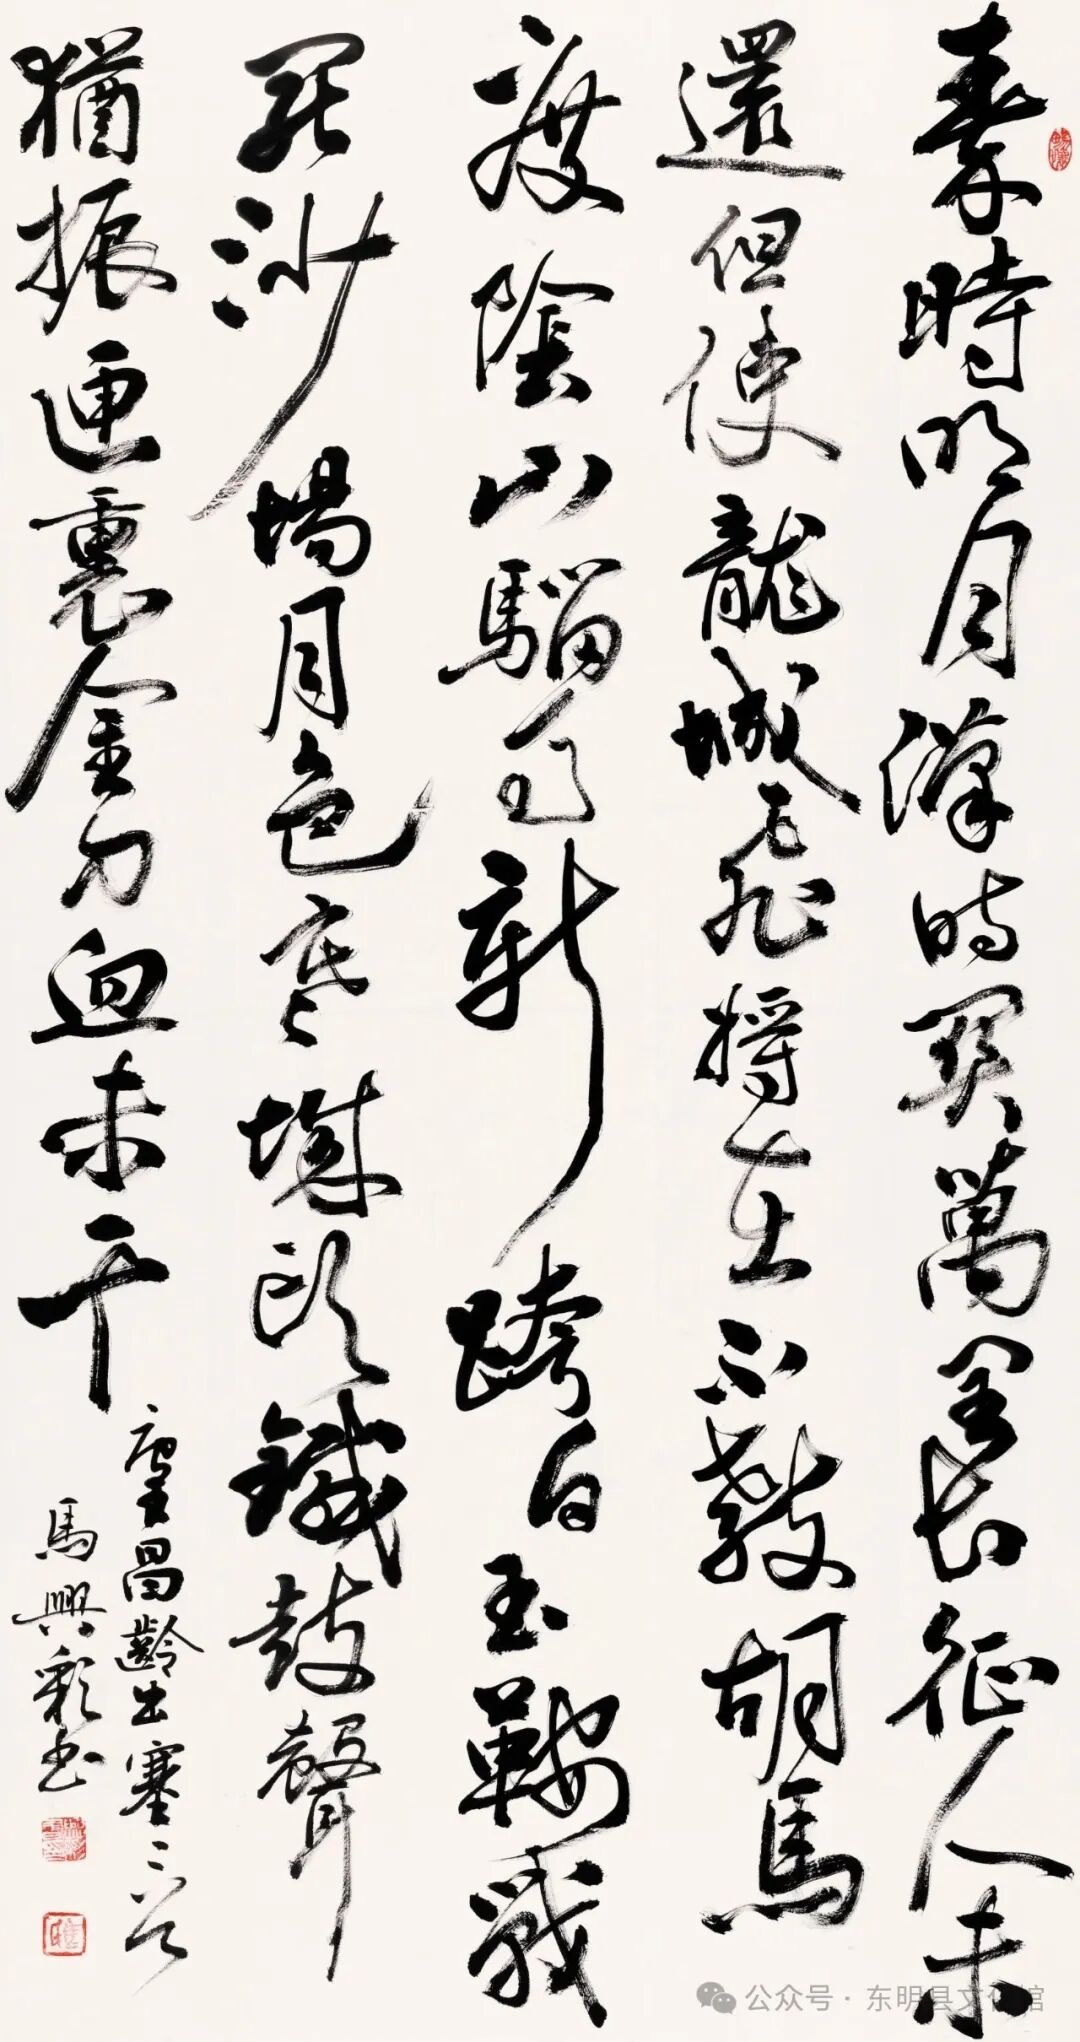 秦時明月漢時關萬里長征人未
還但使龍城飛將在不教胡馬
度陰山騮馬新跨白玉鞍戰
罷沙場月色寒城頭鐵鼓聲
猶振匣裏金刀血未干
唐王昌齡出塞二首
馬興彩书
公众号 · 东明县文化馆